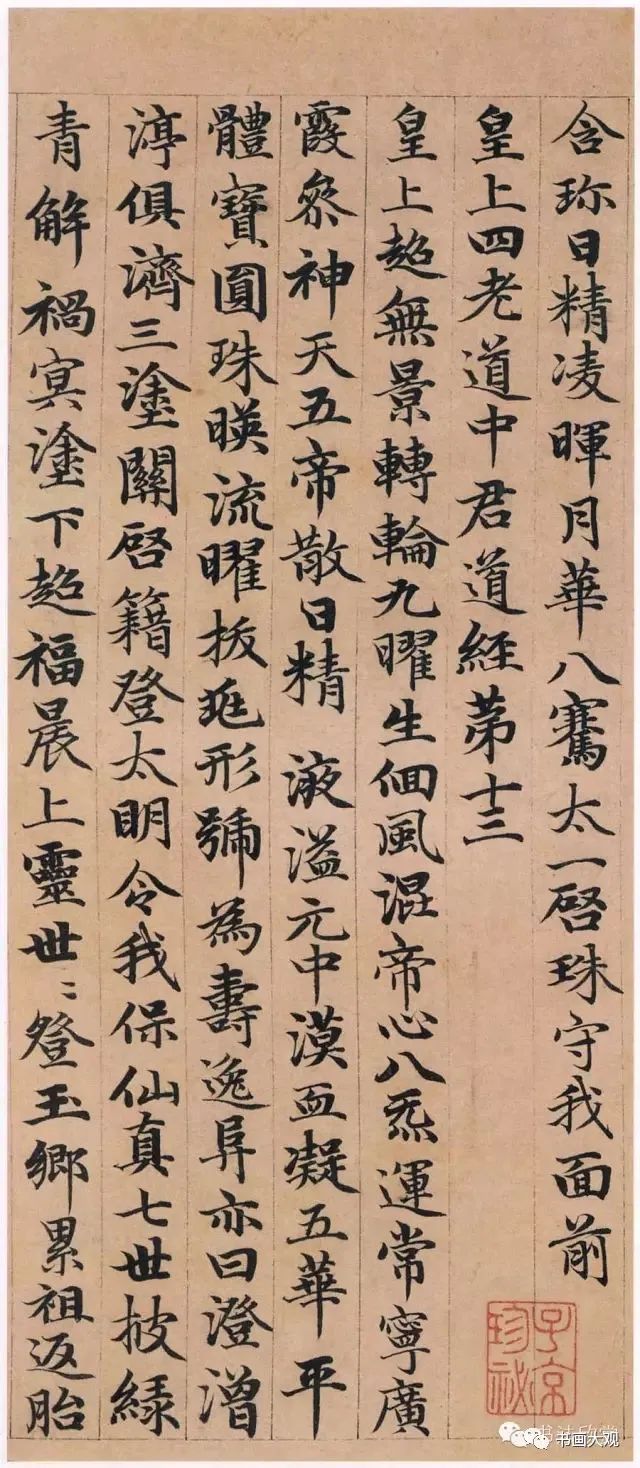 含珎日精凌暉月華八騫太一啓珠守我面前
皇上四老道中君道經苐十三
皇上超無景轉輪九曜生佪風混帝心八炁運常寧廣
霞叅神天五帝散日精 液溢元中漠血凝五華平
體寶圓珠暎流曜拔死形號為壽逸阜亦曰澄澘
渟俱濟三塗關啓籍登太明令我保仙真七世披緑
青解禍冥塗下超福晨上靈世〻登玉鄉累祖返胎
子京珍祕
书画大观